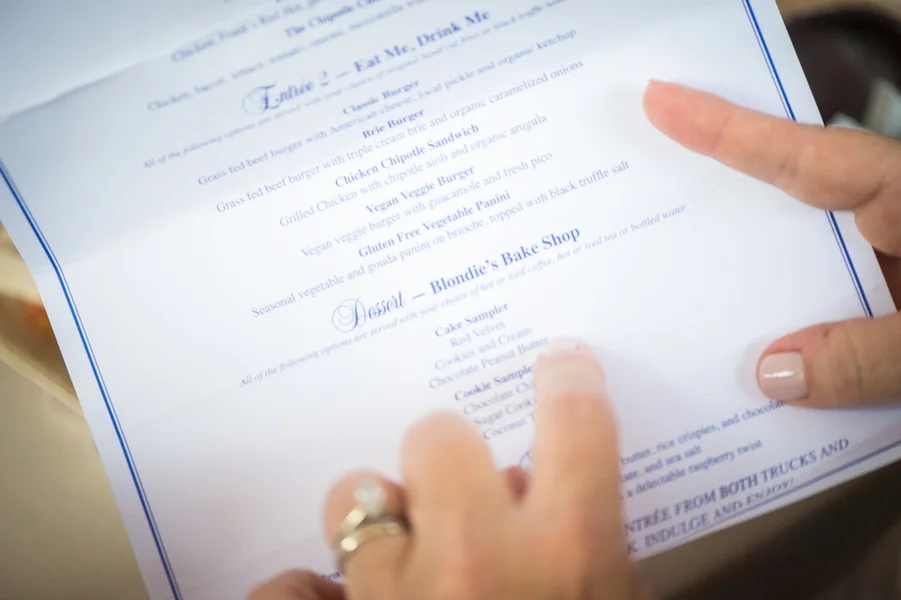 Chicken, Frank's Red Hot,
The Chipotle
Chicken, bacon, lettuce, tomato, onions, mozzarella
Entrée 2 – Eat Me, Drink Me
All of the following options are served with your choice of original hand cut fries or black truffle
Classic Burger
Grass fed beef burger with American cheese, local pickle and organic ketchup
Brie Burger
Grass fed beef burger with triple cream brie and organic caramelized onions
Chicken Chipotle Sandwich
Grilled Chicken with chipotle aioli and organic arugula
Vegan Veggie Burger
Vegan veggie burger with guacamole and fresh pico
Gluten Free Vegetable Panini
Seasonal vegetable and gouda panini on brioche, topped with black truffle salt
Dessert – Blondie's Bake Shop
All of the following options are served with your choice of hot or iced coffee, hot or iced tea or bottled water
Cake Sampler
Red Velvet
Cookies and Cream
Chocolate Peanut Butter
Cookie Sampler
Chocolate
Sugar
Coconut
butter, rice crispies, and
and sea salt
a delectable raspberry twist
ENTRÉE FROM BOTH TRUCKS AND
INDULGE AND ENJOY!